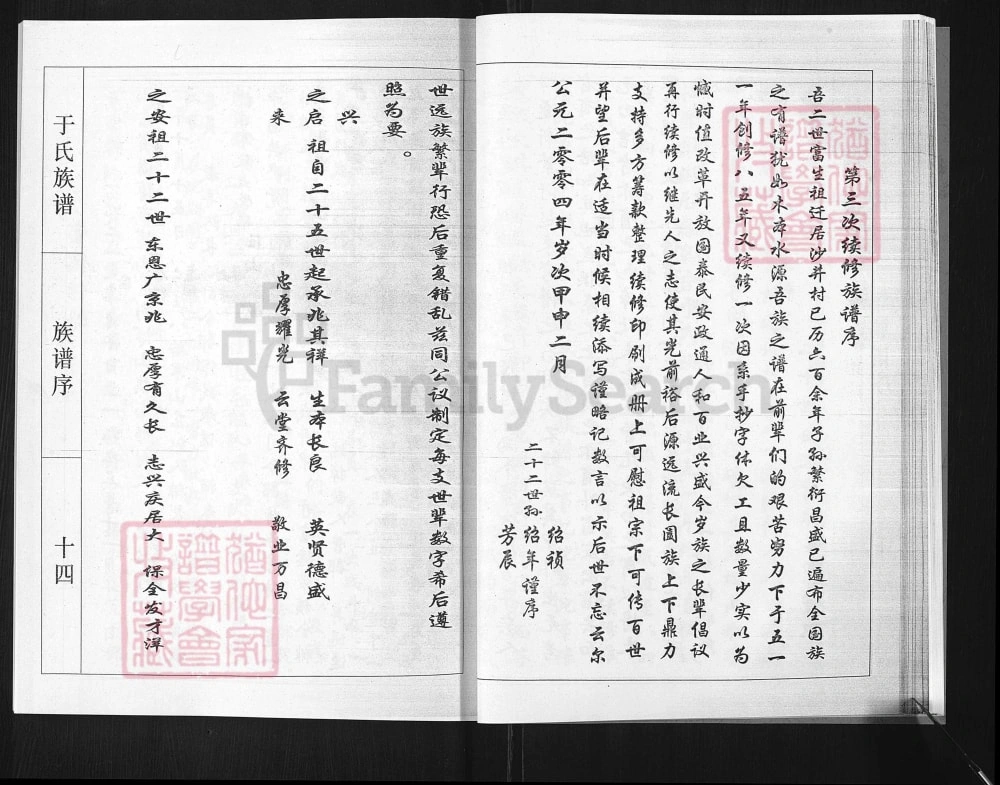 第三次续修族谱序
吾二世富生祖迁居沙井村已历六百余年子孙繁衍昌盛已遍布全国族
之有谱犹如木本水源吾族之谱在前辈们的艰苦努力下于五一
一年创修八五年又续修一次因系手抄字体欠工且数量少实以为
憾时值改革开放国泰民安政通人和百业兴盛今岁族之长辈倡议
再行续修以继先人之志使其光前裕后源远流长阖族上下鼎力
支持多方筹款整理续修印刷成册上可慰祖宗下可传百世
并望后辈在适当时候相续添写谨略记数言以示后世不忘云尔
公元二零零四年岁次甲申二月
绍祯
二十二世孙绍年谨序
芳辰
世远族繁辈行恐后重复错乱兹同公议制定每支世辈数字希后遵
照为要。
兴
之启祖自二十五世起承兆其祥 生本长良 英贤德盛
来 忠厚耀光 云堂齐修 敬业万昌
之安祖二十二世 东恩广京兆 忠厚有久长 志兴庆居大 保全发才洋
于氏族谱
族谱序
十四
FamilySearch